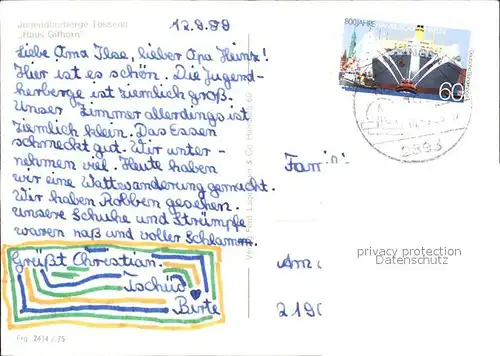 Jugendherberge Tossens
„Haus Gifhorn"
12.9.89
Liebe Oma Ilse, lieber Opa Heinz!
Hier ist es schön. Die Jugend-
herberge ist ziemlich groß.
Unser Zimmer allerdings ist
ziemlich klein. Das Essen
schmeckt gut. Wir unter-
nehmen viel. Heute haben
wir eine Wattwanderung gemacht.
Wir haben Robben gesehen.
Unsere Schuhe und Strümpfe
waren naß und voller Schlamm.
Grüßt Christian.
Tschüß
Birte
Frg. 2414 / 75
800 JAHRE
60
2893
Fami
Am
219
privacy protection
Datenschutz